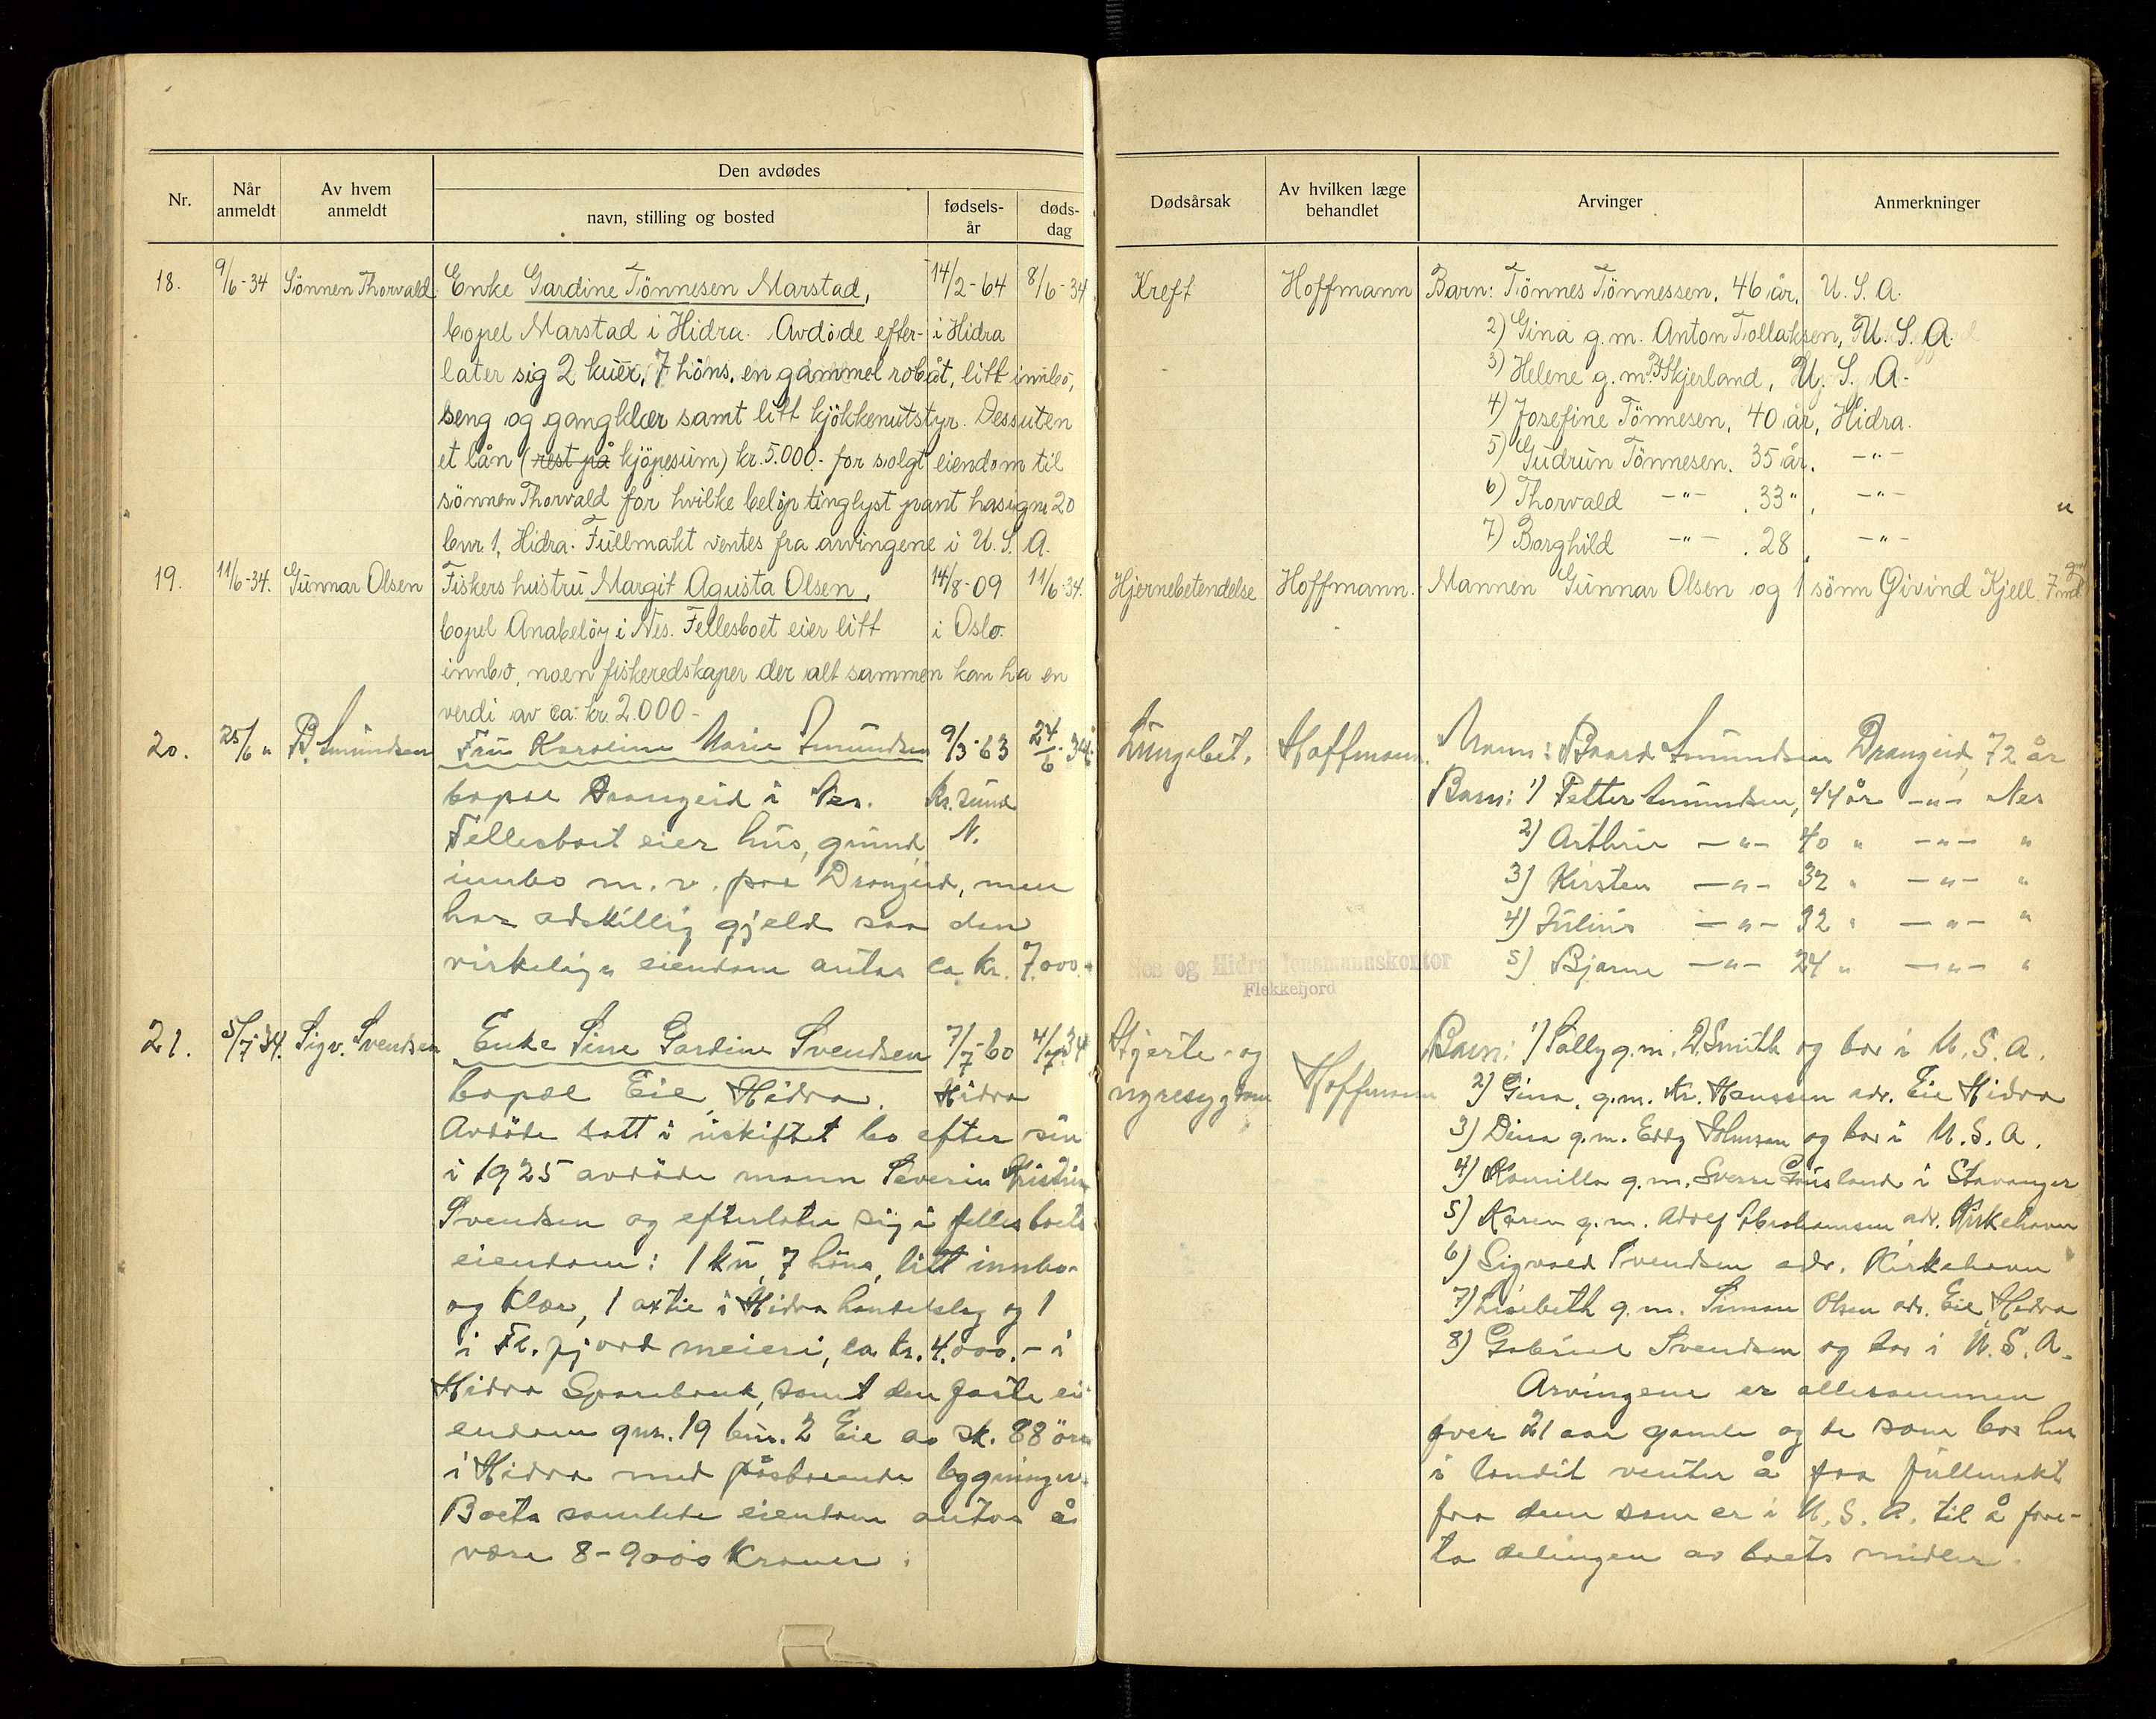 Den avdødes
Nr.
Når anmeldt
Av hvem anmeldt
navn, stilling og bosted
fødsels-år
døds-dag
Dødsårsak
Av hvilken læge behandlet
Arvinger
Anmerkninger
18. 9/6-34 Sönnen Thorvald Enke Gardine Tönnesen Marstad, 14/2-64 8/6-34
bopel Marstad i Hidra. Avdöde efter- i Hidra
later sig 2 kuer, 7 höns, en gammel robåt, litt innbo,
seng og gangklær samt litt kjökkenutstyr. Dessuten
et lån (rest på kjöpesum) kr. 5.000.- for solgt eiendom til
sönnen Thorvald for hvilke belöp tinglyst pant has i gnr 20
bnr. 1, Hidra. Fullmakt ventes fra arvingene i U.S.A.
Kreft Hoffmann Barn: Tönnes Tönnessen, 46 år, U.S.A.
2) Gina g.m. Anton Tollaksen, U.S.A.
3) Helene g.m. Skjerland, U.S.A.
4) Josefine Tönnesen, 40 år, Hidra.
5) Gudrun Tönnesen. 35 år. -"-
6) Thorvald -"- 33 " -"-
7) Borghild -"- 28 -"-
19. 11/6-34. Gunnar Olsen Fiskers hustru Margit Agusta Olsen, 14/8-09 11/6-34.
bopel Anabelöy i Nes. Fellesboet eier litt i Oslo.
innbo, noen fiskeredskaper der alt sammen kan ha en
verdi av ca. kr. 2.000-
Hjernebetendelse Hoffmann. Mannen Gunnar Olsen og 1 sönn Øivind Kjell 7 md
20. 25/6 " B. Amundsen Fru Karoline Marie Amundsen 9/3-63 24/6-34.
bopæl Drangeid i Nes. Kr.sund
Fellesboet eier hus, grund, N.
innbo m.v. paa Drangeid, men
har adskillig gjeld saa den
virkelige eiendom antas ca. kr. 7.000.-
Lungebet. Hoffmann. Mann: Baard Amundsen Drangeid, 72 år
Barn: 1) Petter Amundsen, 44 år -"- Nes
2) Arthur -"- 40 " -"- "
3) Kirsten -"- 32 " -"- "
4) Julius -"- 32 " -"- "
5) Bjarne -"- 24 " -"- "
Nes og Hidra lensmannskontor
Flekkefjord
21. 5/7-34. Sigv. Svendsen Enke Sine Gardine Svendsen 7/7-60 4/7-34
bopæl Eie, Hidra. Hidra
Avdöde satt i uskiftet bo efter sin
i 1925 avdöde mann Severin Kristian
Svendsen og efterlater sig i fellesboets
eiendom: 1 ku, 7 höns, litt innbo
og klær, 1 aktie i Hidra handelslag og 1
i Fl.fjord meieri, ca. kr. 4.000.- i
Hidra Sparebank, samt den faste ei-
endom gnr. 19 bnr. 2 Eie av sk. 88 öre
i Hidra med påstaaende bygninger.
Boets samlede eiendom antas å
være 8-9000 Kroner.
Hjerte- og
nyresygdom Hoffmann
Barn: 1) Sally g.m. D. Smith og bor i U.S.A.
2) Gina, g.m. Kr. Hanssen adr. Eie Hidra
3) Dina g.m. Eddy Johnsen og bor i U.S.A.
4) Kamilla g.m. Sverre Gausland i Stavanger
5) Karen g.m. Adolf Abrahamsen adr. Kirkehavn
6) Sigvald Svendsen adr. Kirkehavn
7) Lisebeth g.m. Simon Olsen adr. Eie, Hidra
8) Gabriel Svendsen og bor i U.S.A.
Arvingene er allesammen
över 21 aar gamle og de som bor her
i landet venter å faa fullmakt
fra dem som er i U.S.A. til å fore-
ta delingen av boets midler.